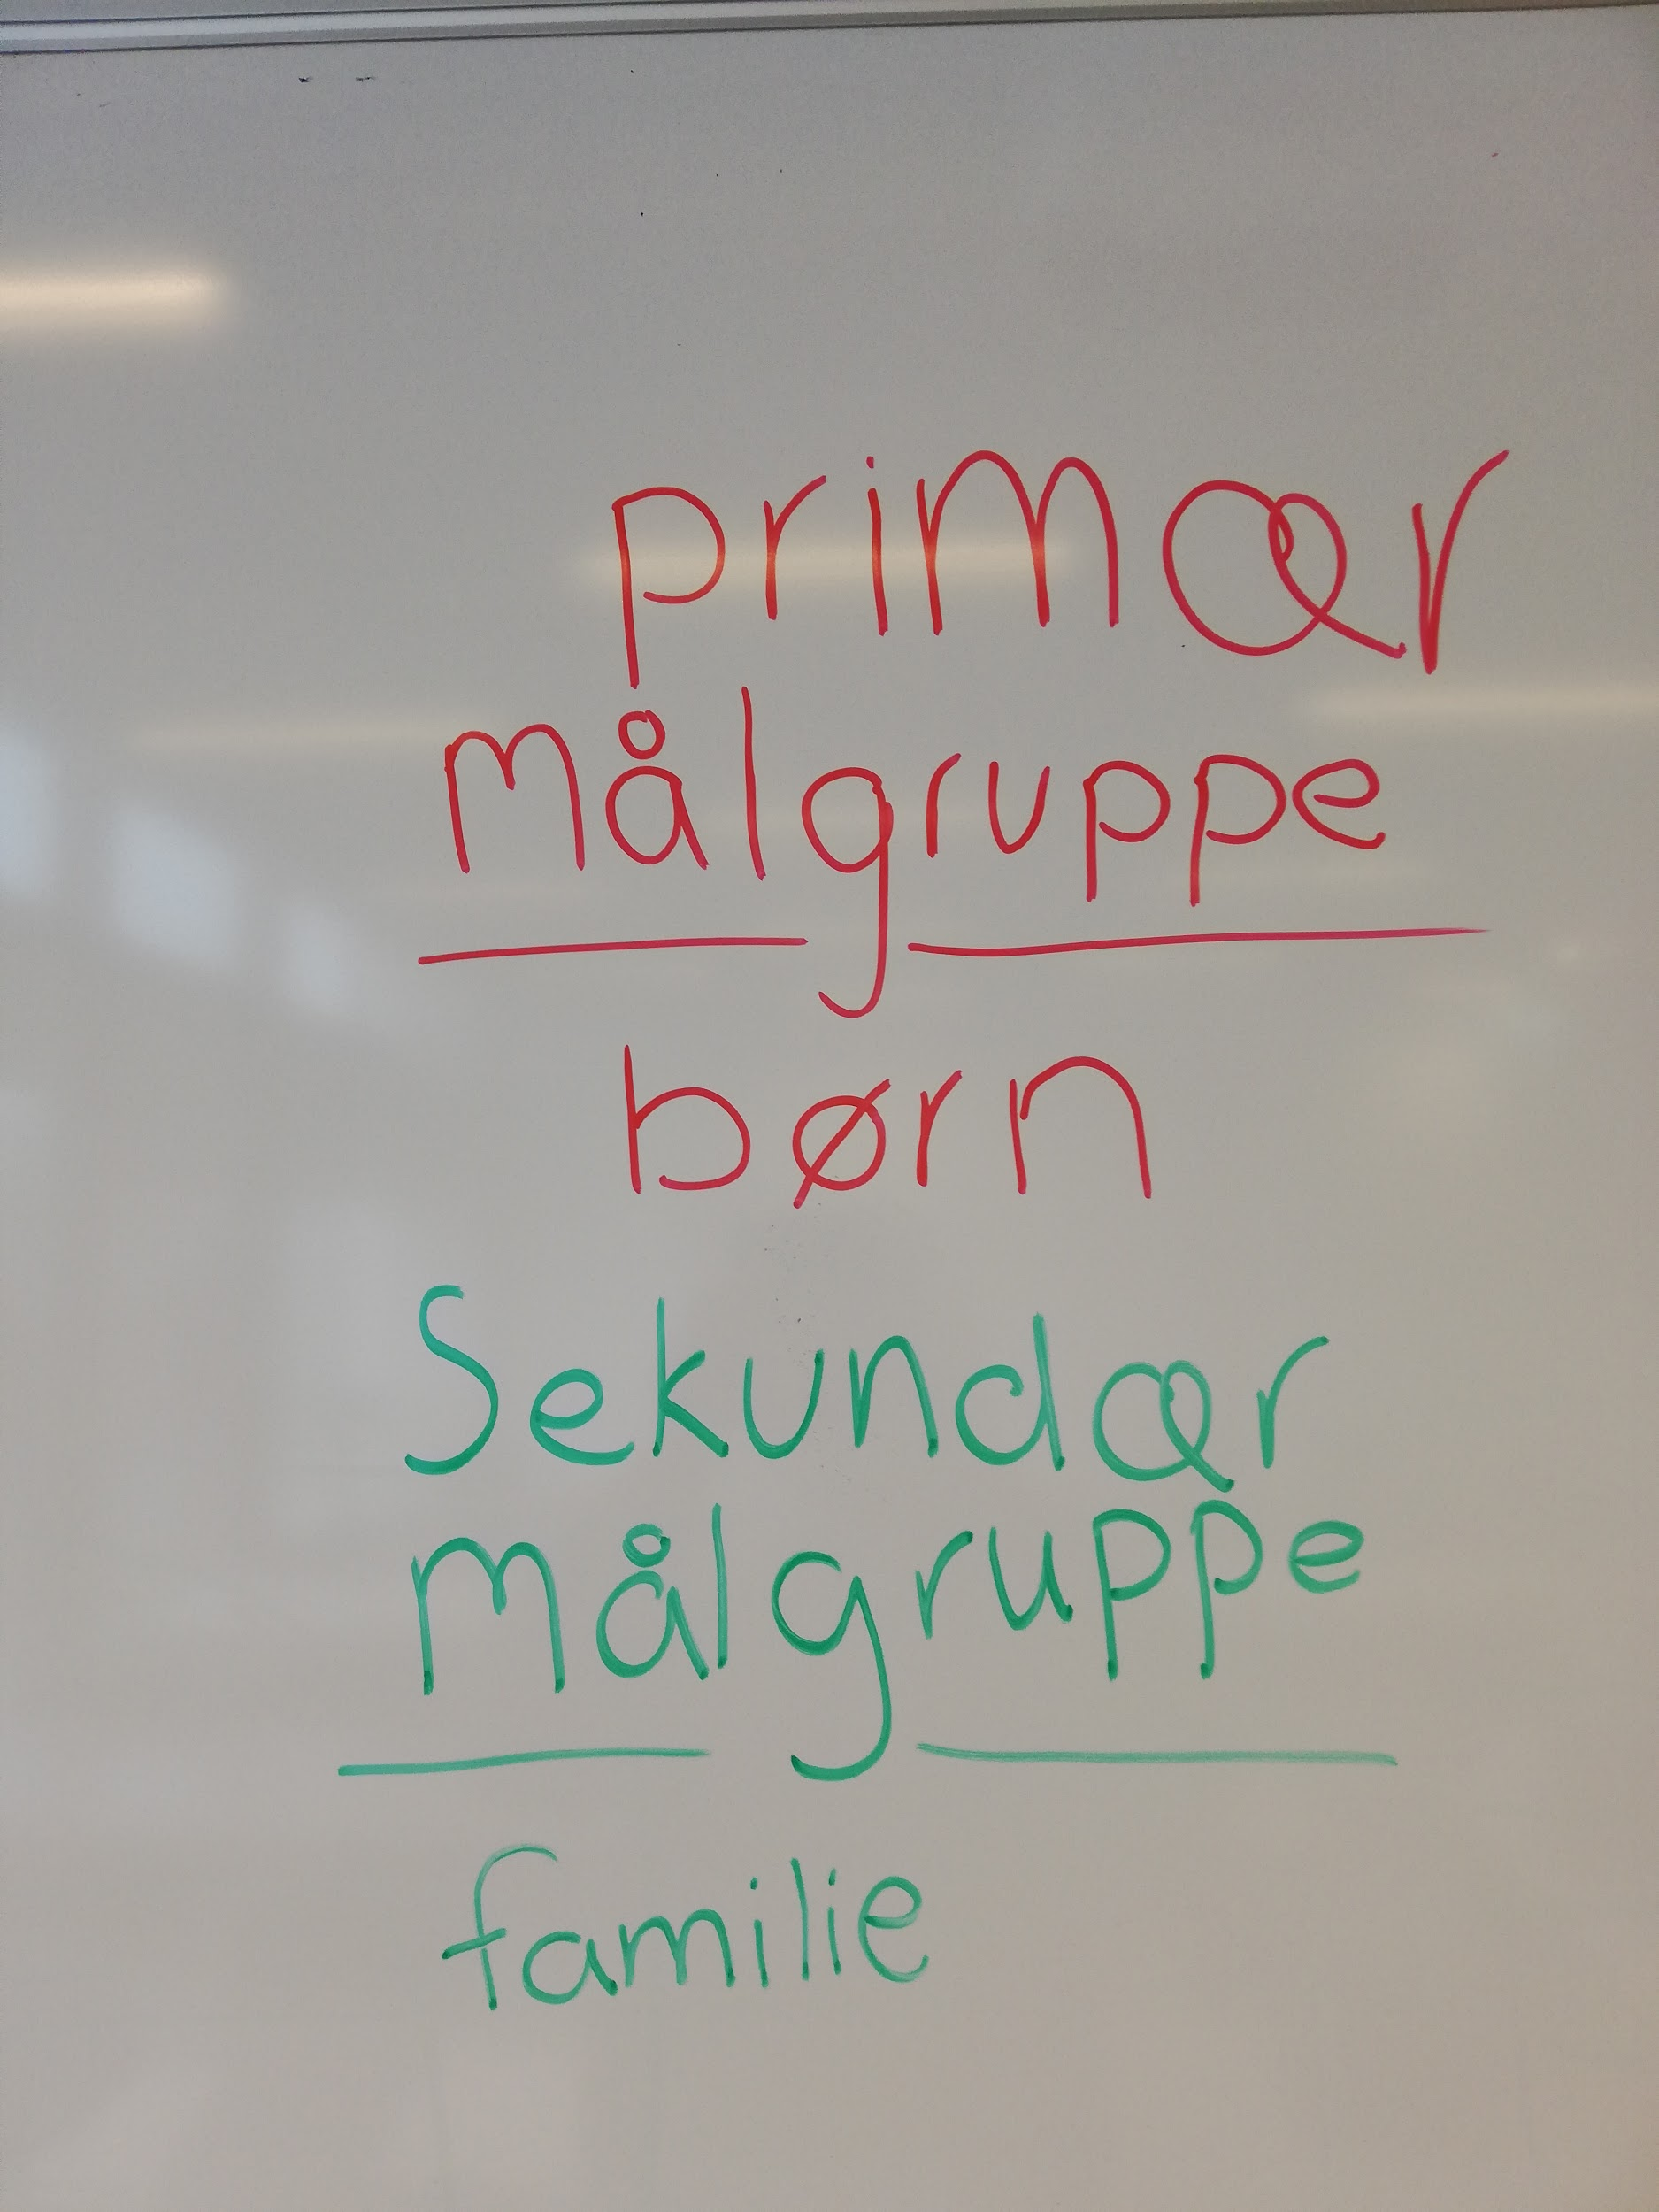 primær
målgruppe
børn
Sekundær
målgruppe
familie